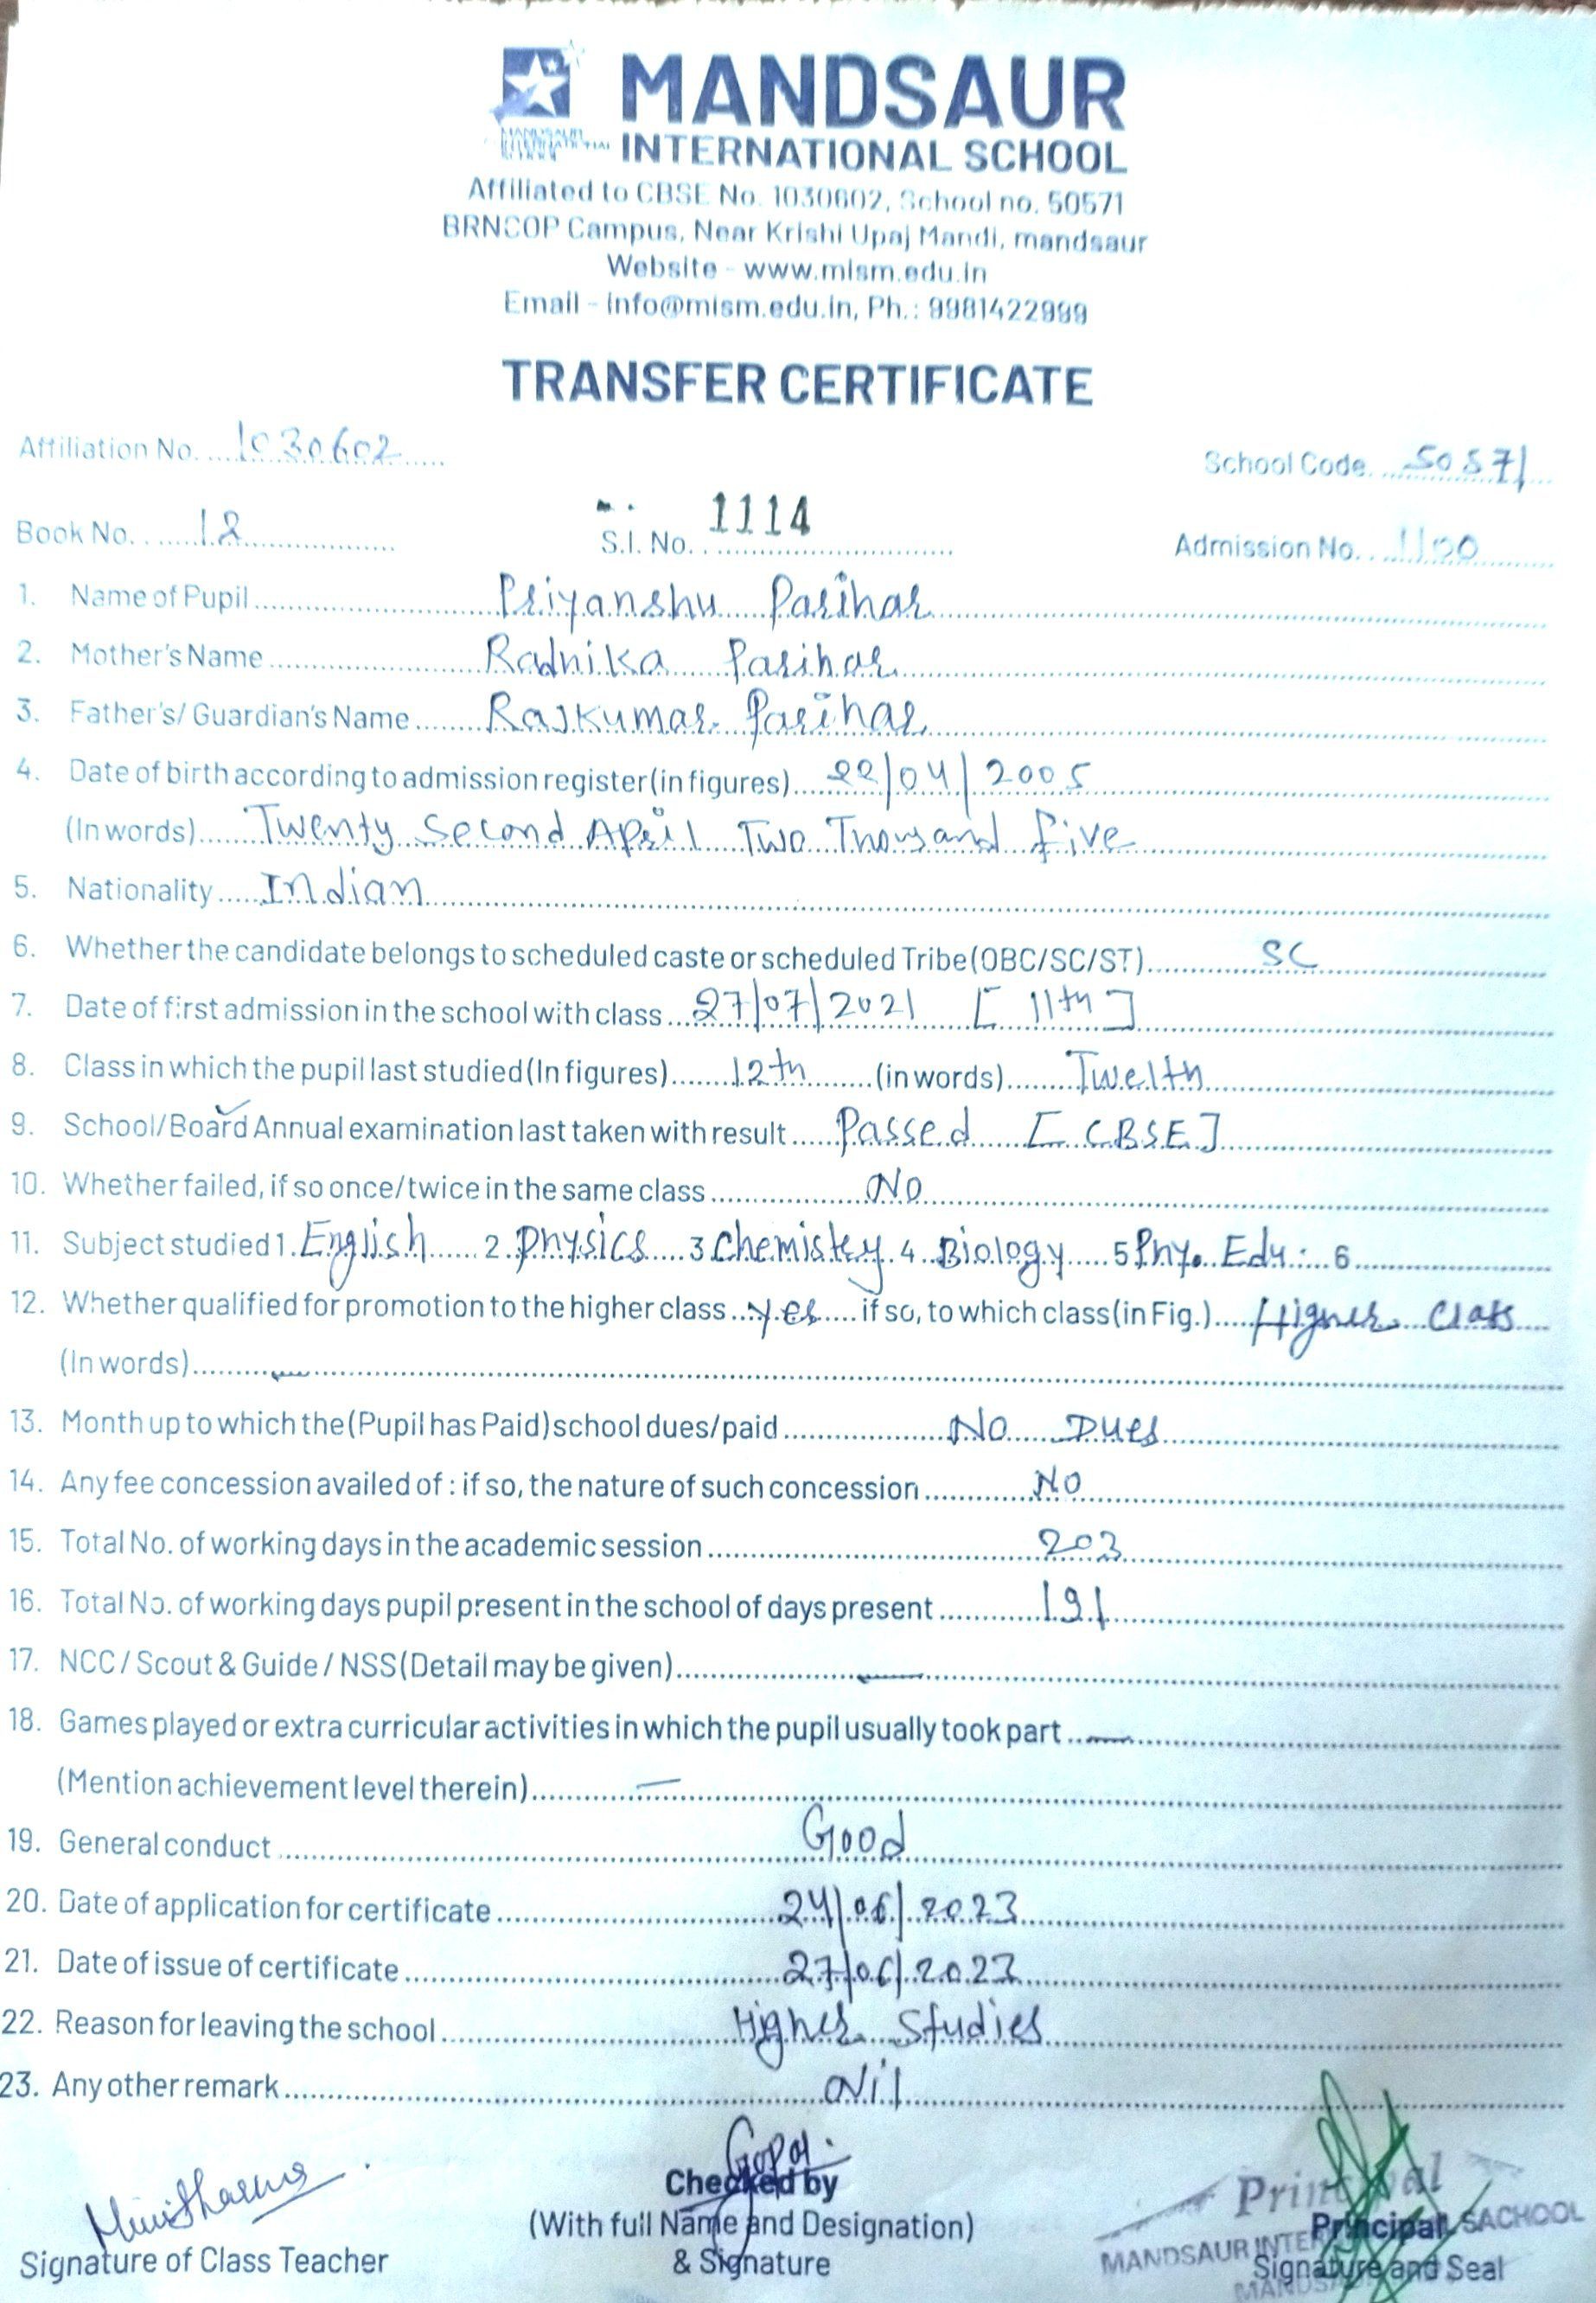 MANDSAUR
INTERNATIONAL SCHOOL
Affiliated to CBSE No. 1030602, School no. 50571
BRNCOP Campus, Near Krishi Upaj Mandi, mandsaur
Website - www.mism.edu.in
Email - info@mism.edu.in, Ph.: 9981422999
TRANSFER CERTIFICATE
Affiliation No. 1030602 School Code. 50571
Book No. 12 S.I. No. 1114 Admission No. 1100
1. Name of Pupil Priyanshu Parihar
2. Mother's Name Radhika Parihar
3. Father's/ Guardian's Name Rajkumar Parihar
4. Date of birth according to admission register (in figures) 22/04/2005
(In words) Twenty Second April Two Thousand five
5. Nationality Indian
6. Whether the candidate belongs to scheduled caste or scheduled Tribe (OBC/SC/ST) SC
7. Date of first admission in the school with class 27/07/2021 [ 11th ]
8. Class in which the pupil last studied (In figures) 12th (in words) Twelth
9. School/Board Annual examination last taken with result Passed [ CBSE ]
10. Whether failed, if so once/twice in the same class NO
11. Subject studied 1. English 2. Physics 3 Chemistry 4. Biology 5 Phy. Edu. 6
12. Whether qualified for promotion to the higher class Yes if so, to which class (in Fig.) Higher Class
(In words)
13. Month up to which the (Pupil has Paid) school dues/paid No Dues
14. Any fee concession availed of : if so, the nature of such concession NO
15. Total No. of working days in the academic session 203
16. Total No. of working days pupil present in the school of days present 191
17. NCC / Scout & Guide / NSS (Detail may be given)
18. Games played or extra curricular activities in which the pupil usually took part
(Mention achievement level therein)
19. General conduct Good
20. Date of application for certificate 24/06/2023
21. Date of issue of certificate 27/06/2023
22. Reason for leaving the school Higher Studies
23. Any other remark Nil
Gopal
Checked by
Principal
(With full Name and Designation)
Principal
Signature of Class Teacher
& Signature
Signature and Seal